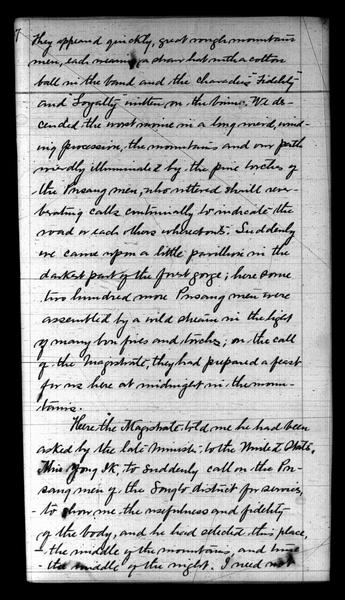 7
They appeared quickly, great rough mountain
men, each wearing a straw hat with a cotton
ball in the band and the characters "Fidelity
and Loyalty" written on the brim. We de-
cended the worst ravine in a long weird, wind-
ing procession, the mountains and our path
weirdly illuminated by the pine torches of
the Pusang men, who uttered shrill rever-
berating calls continually to indicate the
road or each others whereabouts. Suddenly
we came upon a little pavilion in the
darkest part of the forest gorge; here some
two hundred more Pusang men were
assembled by a wild stream in the light
of many bon fires and torches; on the call
of the Magistrate, they had prepared a feast
for us here at midnight in the moun-
tains.
Here the Magistrate told me he had been
asked by the late Minister to the United States,
Min Yong Ik, to suddenly call on the Pu-
sang men of the Songto district for service,
to show me the usefulness and fidelity
of the body, and he had selected this place,
the middle of the mountains, and time
the middle of the night. I need not